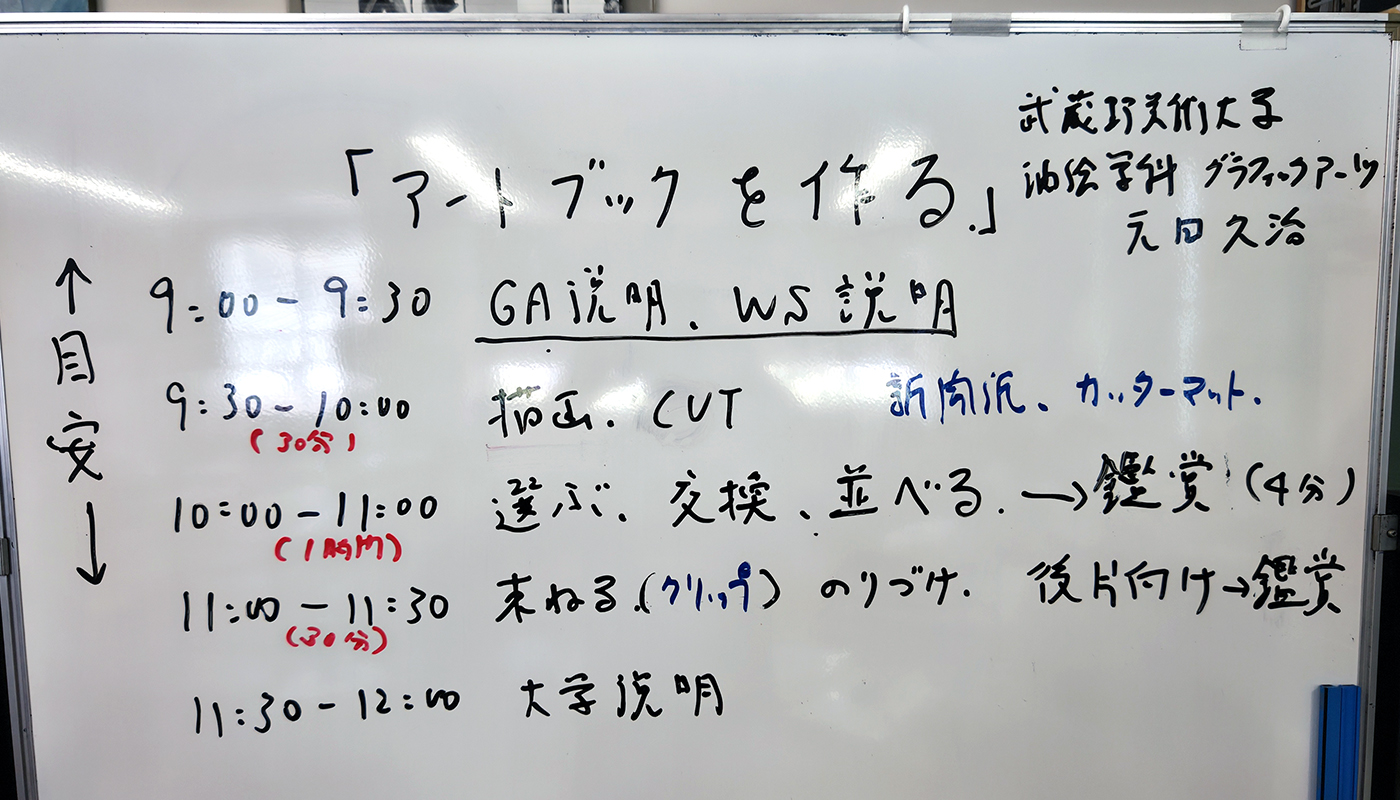 武蔵野美術大学
油絵学科 グラフィックアーツ
元田久治
「アートブックを作る」
↑目安↓
9:00-9:30 GA説明、WS説明
9:30-10:00 描画、CUT 新聞紙、カッターマット.
(30分)
10:00-11:00 選ぶ、交換、並べる. →鑑賞(4分)
(1時間)
11:00-11:30 束ねる.(クリップ) のりづけ. 後片向け→鑑賞
(30分)
11:30-12:00 大学説明